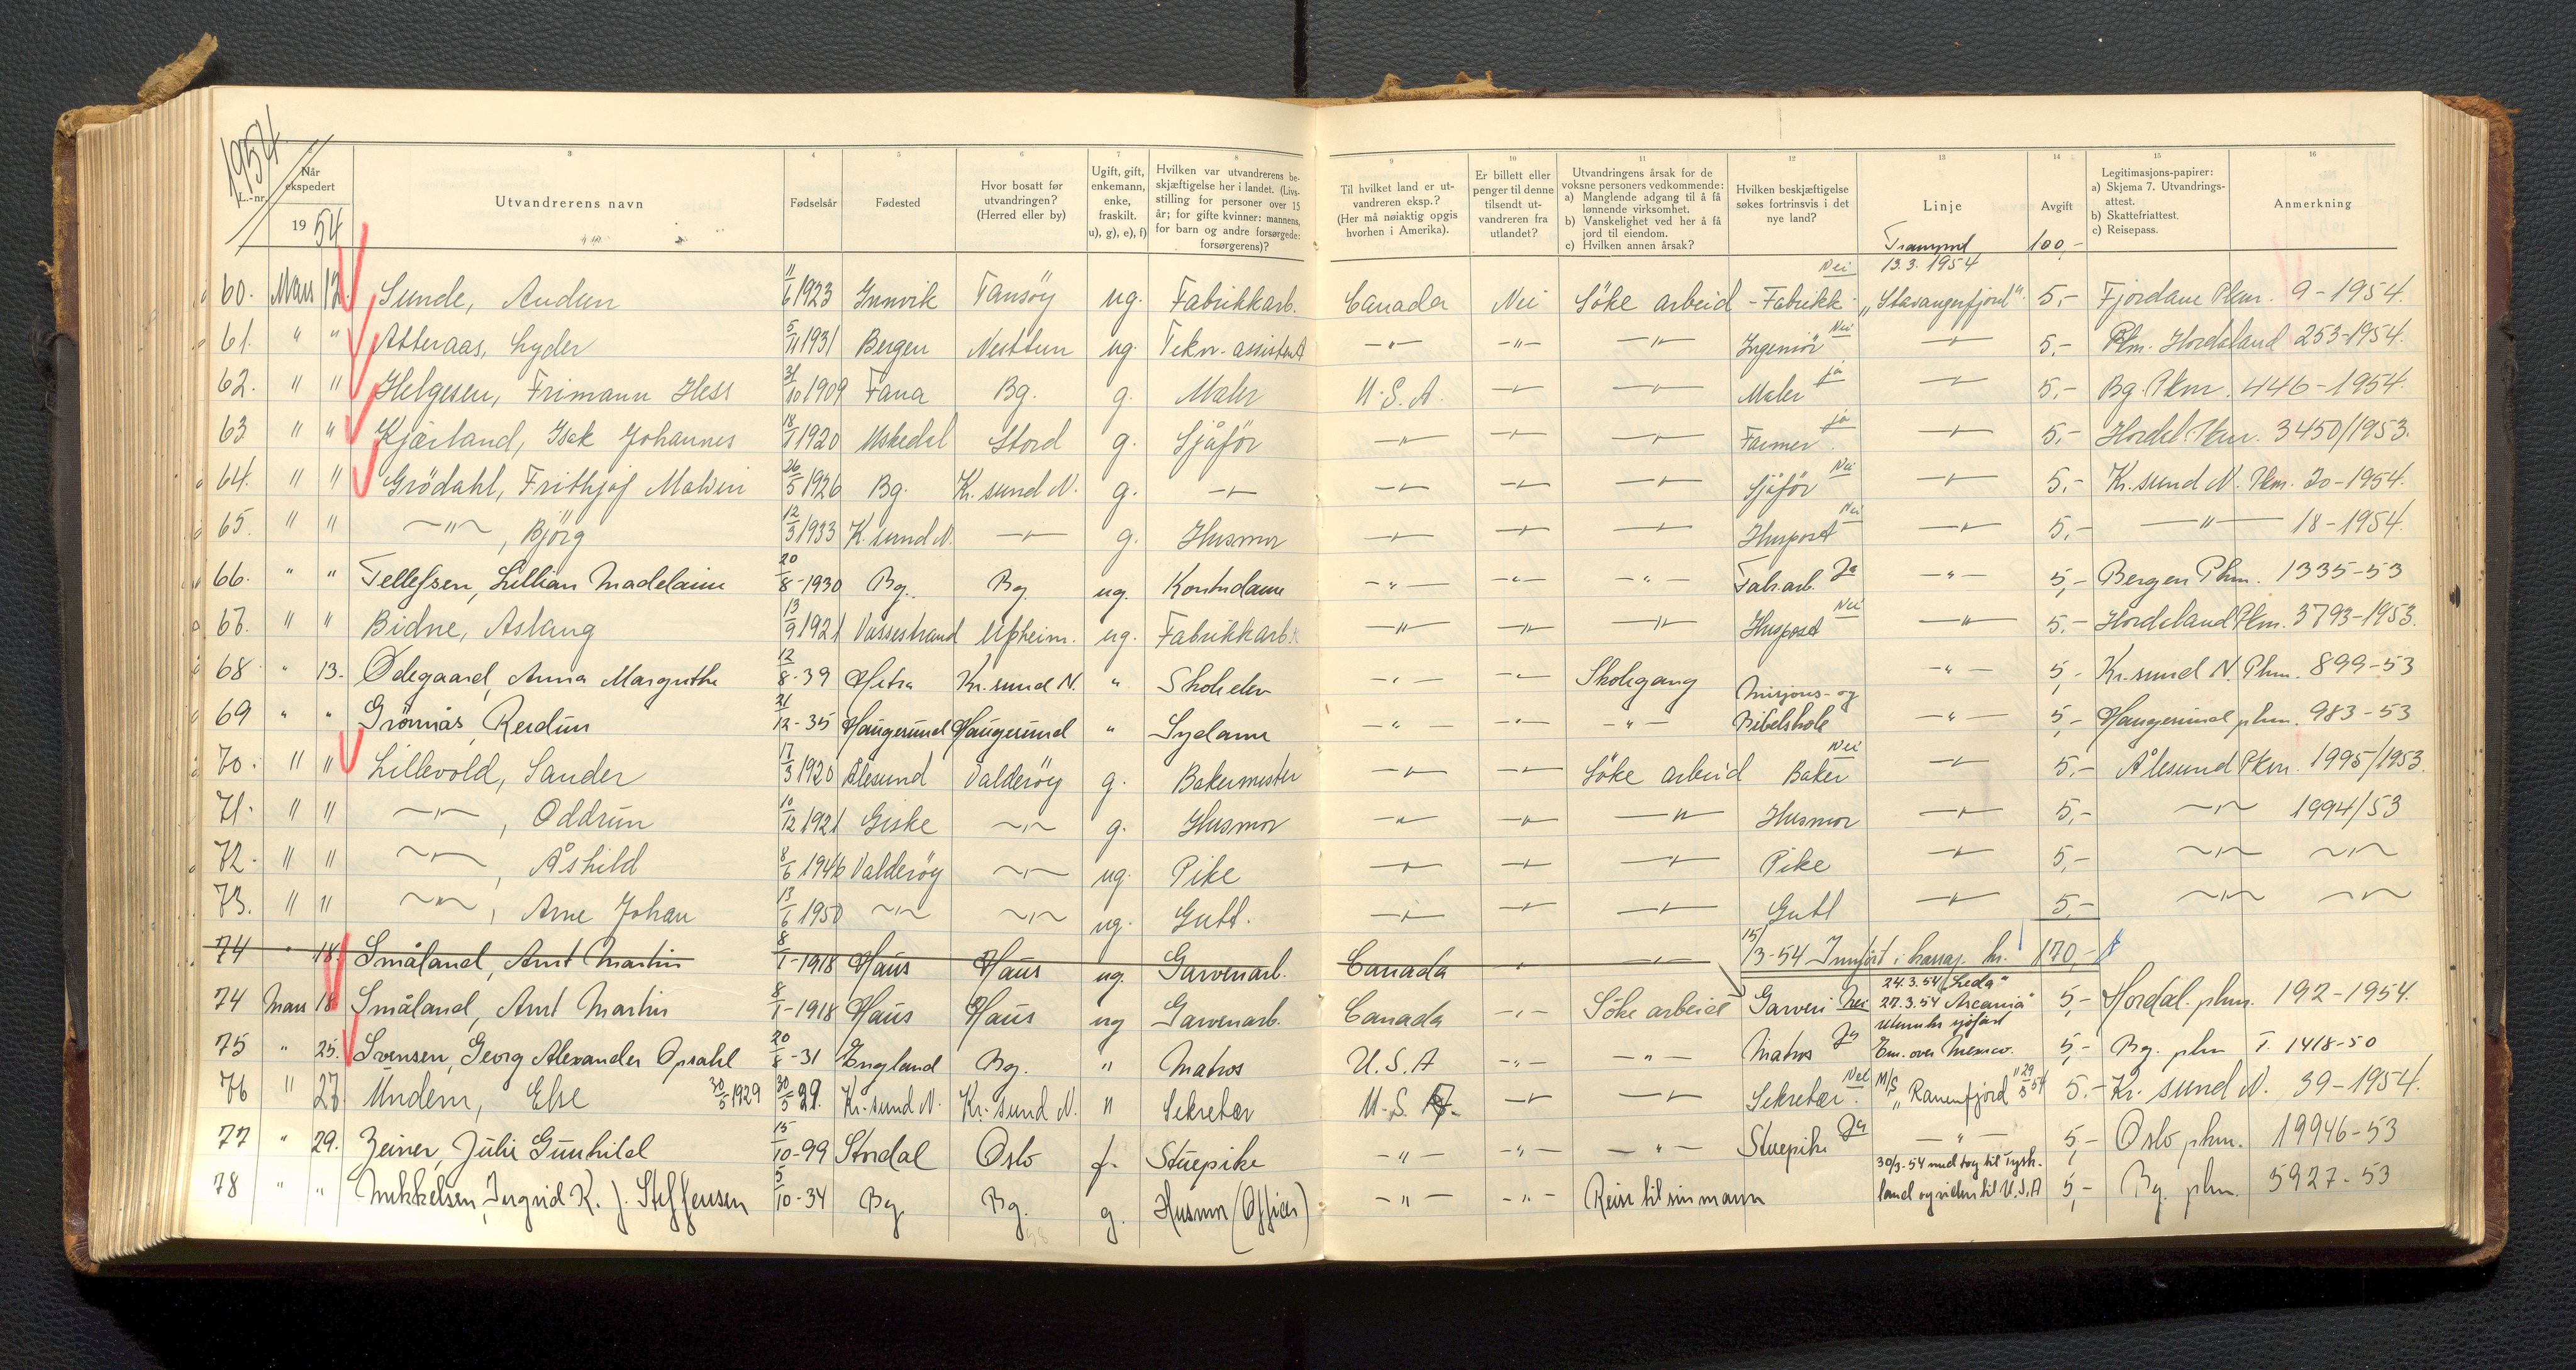 1954
L.-nr.
Når ekspedert
1954
3
Utvandrerens navn
4
Fødselsår
5
Fødested
6
Hvor bosatt før utvandringen? (Herred eller by)
7
Ugift, gift, enkemann, enke, fraskilt. u), g), e), f)
8
Hvilken var utvandrerens beskjæftigelse her i landet. (Livsstilling for personer over 15 år; for gifte kvinner: mannens, for barn og andre forsørgede: forsørgerens)?
9
Til hvilket land er utvandreren eksp.? (Her må nøiaktig opgis hvorhen i Amerika).
10
Er billett eller penger til denne tilsendt utvandreren fra utlandet?
11
Utvandringens årsak for de voksne personers vedkommende: a) Manglende adgang til å få lønnende virksomhet. b) Vanskelighet ved her å få jord til eiendom. c) Hvilken annen årsak?
12
Hvilken beskjæftigelse søkes fortrinsvis i det nye land?
13
Linje
14
Avgift
15
Legitimasjons-papirer: a) Skjema 7. Utvandringsattest. b) Skattefriattest. c) Reisepass.
16
Anmerkning
Transport 100,-
60. Mars 12. Sunde, Audun 11/6 1923 Innvik Tansøy ug. Fabrikkarb. Canada Nei Söke arbeid - Fabrikk - Nei 13.3. 1954 „Stavangerfjord" 5,- Fjordane Pkm. 9-1954.
61. " " Atteraas, Lyder 5/11 1931 Bergen Nesttun ug. Tekn. assistent -"- -"- -"- Ingeniör Nei -"- 5,- Pkm. Hordaland 253-1954.
62. " " Helgesen, Frimann Hess 31/10 1909 Fana Bg. g. Maler U.S.A. -"- -"- Maler ja -"- 5,- Bg. Pkm. 446-1954.
63 " " Kjærland, Isak Johannes 18/1 1920 Uskedal Stord g. Sjåför -"- -"- -"- Farmer ja -"- 5,- Hordal. Pkm. 3450/1953.
64. " " Grödahl, Frithjof Malvin 26/5 1926 Bg. Kr. sund N. g. -"- -"- -"- -"- Sjåför Nei -"- 5,- Kr. sund N. Pkm. 20-1954.
65. " " -"-, Björg 12/3 1933 K. sund N. -"- g. Husmor -"- -"- -"- Huspost Nei -"- 5,- -"- 18-1954.
66. " " Tellefsen, Lillian Madelaine 20/8-1930 Bg. Bg. ug. Kontordame -"- -"- -"- Fabr.arb. Ja -"- 5,- Bergen Pkm. 1335-53
67. " " Bidne, Aslaug 13/9 1921 Vossestrand Upheim. ug. Fabrikkarb. -"- -"- -"- Huspost Nei -"- 5,- Hordaland Pkm. 3793-1953.
68 " 13. Ødegaard, Anna Margrethe 12/8-39 Hitra Kr. sund N. " Skoleelev -"- -"- Skolegang Misjons- og -"- 5,- Kr. sund N. Pkm. 899-53
69 " " Grönnås, Reidun 21/12-35 Haugesund Haugesund " Sydame -"- -"- -"- Bibelskole -"- 5,- Haugesund pkm. 983-53
70. " " Lillevold, Sander 17/3 1920 Ålesund Valderöy g. Bakermester -"- -"- Söke arbeid Baker Nei -"- 5,- Ålesund Pkm. 1995/1953.
71. " " -"-, Oddrun 10/12 1921 Giske -"- g. Husmor -"- -"- -"- Husmor -"- 5,- -"- 1994/53
72. " " -"-, Åshild 8/6 1946 Valderöy -"- ug. Pike -"- -"- -"- Pike -"- 5,- -"- -"-
73. " " -"-, Arne Johan 13/6 1950 -"- -"- ug. Gutt. -"- -"- -"- Gutt -"- 5,- -"- -"-
74 " 18. Småland, Arnt Martin 8/1-1918 Haus Haus ug. Garveriarb. Canada " -"- 15/3-54 Innført i kassaj. kr. 170,-
74 Mars 18 Småland, Arnt Martin 8/1-1918 Haus Haus ug Garveriarb. Canada -"- Söke arbeid Garveri Nei 24.3.54 „Leda" 27.3.54 Ascania" 5,- Hordal. pkm. 192-1954.
75 " 25. Svensen, Georg Alexander Opsahl 20/8-31 England Bg. " Matros U.S.A -"- -"- Matros Ja utenriks sjøfart Em. over Mexico. 5,- Bg. pkm T. 1418-50
76 " 27. Undem, Else 30/5 1929 30/5 29. Kr. sund N. Kr. sund N. " Sekretær U.S.A. -"- -"- Sekretær Nei M/S „Ranenfjord" 29/3 54 5,- Kr. sund N. 39-1954.
77 " 29. Zeiner, Julie Gunhild 15/10-99 Stordal Oslo f. Stuepike -"- -"- -"- Stuepike Ja -"- 5,- Oslo pkm. 19946-53
78 " " Mikkelsen, Ingrid K. f. Steffensen 5/10-34 Bg. Bg. g. Husmor (Officer) -"- -"- Reise til sin mann 30/3-54 med tog til Tyskland og videre til U.S.A 5,- Bg. pkm. 5927-53